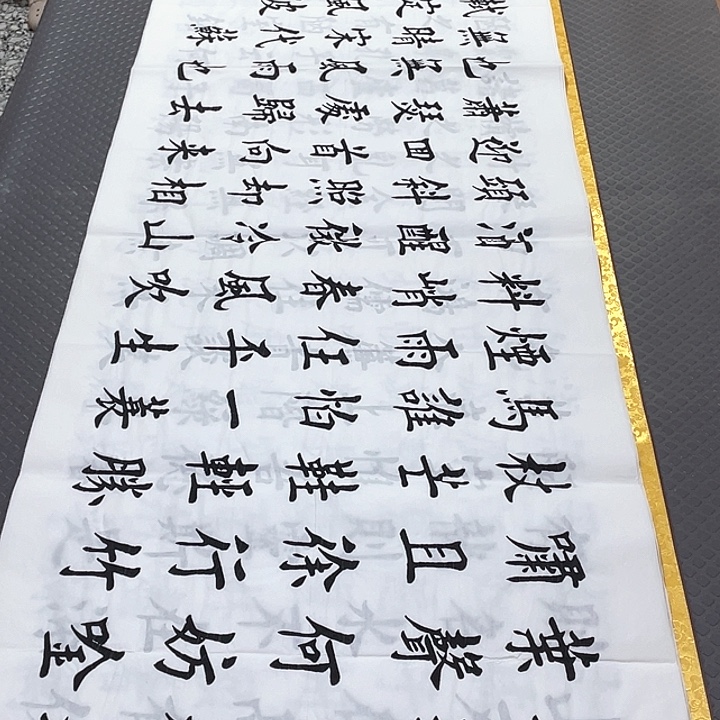 葉聲何妨吟
嘯且徐行竹
杖芒鞋輕勝
馬誰怕一蓑
煙雨任平生
料峭春風吹
酒醒微冷山
頭斜照卻相
迎回首向來
蕭瑟處歸去
也無風雨也
無晴宋代蘇
軾定風波